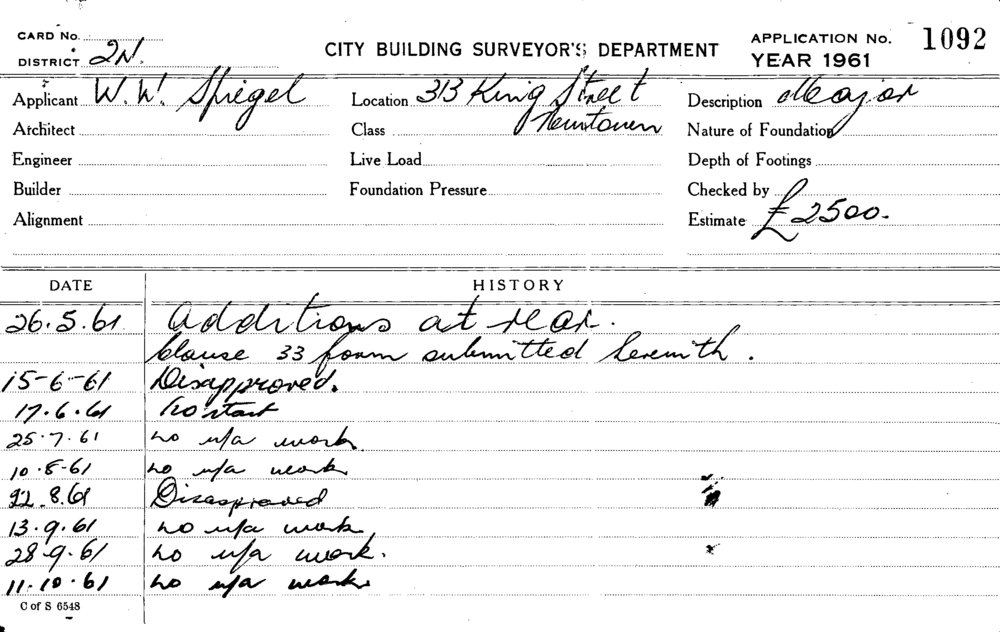 CARD No.
DISTRICT 2N.
CITY BUILDING SURVEYOR'S DEPARTMENT
APPLICATION No. 1092
YEAR 1961
Applicant W. W. Spiegel
Location 313 King Street
Newtown
Description Major
Architect
Class
Nature of Foundation
Engineer
Live Load
Depth of Footings
Builder
Foundation Pressure
Checked by
Alignment
Estimate £2500.
DATE HISTORY
26.5.61 Additions at rear.
Clause 33 form submitted herewith.
15-6-61 Disapproved.
17.6.61 No start
25.7.61 no u/a work.
10.8.61 no u/a work
22.8.61 Disapproved
13.9.61 no u/a work
28.9.61 no u/a work.
11.10.61 no u/a work.
C of S 6548